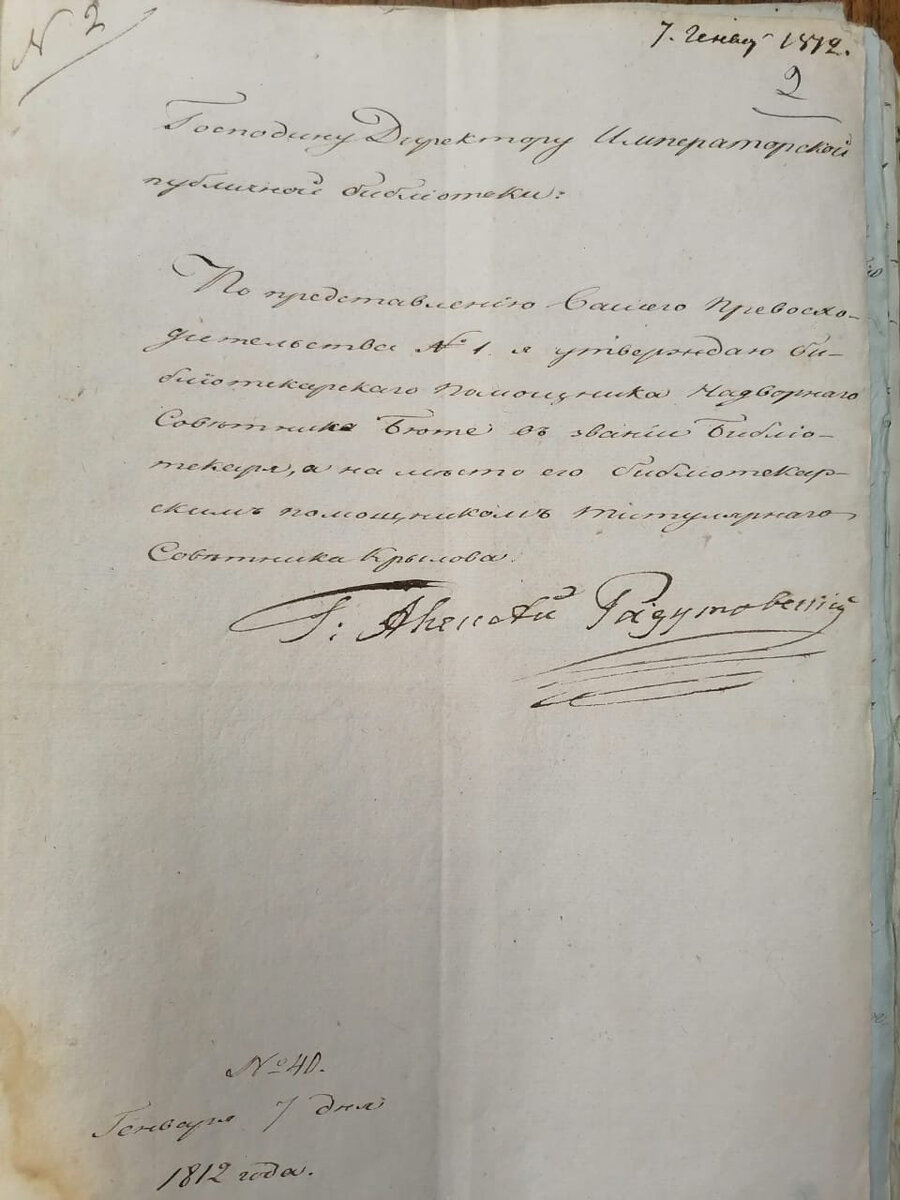 N 2
7. Генвар 1812.
2
Господину Директору Императорской
публичной библіотеки:
По представленію Вашего Превосхо-
дительства № 1. я утверждаю би-
бліотекарскаго помощника Надворнаго
Совѣтника Бюте въ званіи Библіо-
текаря, а на мѣсто его библіотекар-
скимъ помощникомъ титулярнаго
Совѣтника Крылова.
Г: Алексѣй Разумовскій
№ 40.
Генваря 7 дня
1812 года.